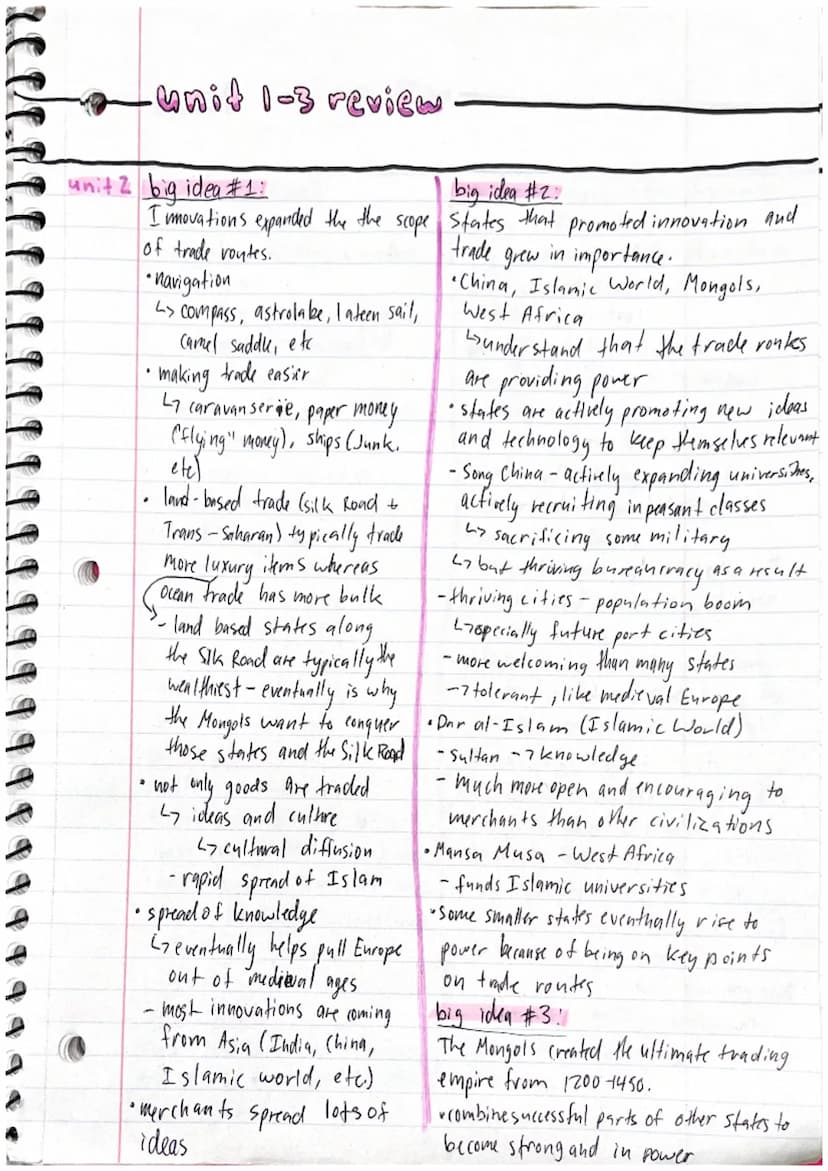 unit 1-3 review
unit 2
big idea #1:
Innovations expanded the the scope
of trade routes.
•navigation
↳ compass, astrolabe, lateen sail,
camel saddle, etc
• making trade easier
↳ caravanserie, paper money
("flying" money), ships (Junk,
etc)
• land-based trade (silk Road +
Trans-Saharan) typically trade
more luxury items whereas
ocean trade has more bulk
- land based states along
the Silk Road are typically the
wealthiest - eventually is why
the Mongols want to conquer
those states and the Silk Road
• not only goods are traded
↳ ideas and culture
↳ cultural diffusion
- rapid spread of Islam
• spread of knowledge
↳ eventually helps pull Europe
out of medieval ages
- most innovations are coming
from Asia (India, China,
Islamic world, etc.)
•merchants spread lots of
ideas
big idea #2:
States that promoted innovation and
trade grew in importance.
•China, Islamic World, Mongols,
West Africa
↳understand that the trade routes
are providing power
• states are actively promoting new ideas
and technology to keep themselves relevant
- Song China - actively expanding universities,
actively recruiting in peasant classes
↳ sacrificing some military
↳ but thriving bureaucracy as a result
- thriving cities - population boom
↳especially future port cities
- more welcoming than many states
→ tolerant, like medieval Europe
• Dar al-Islam (Islamic World)
- Sultan → knowledge
- much more open and encouraging to
merchants than other civilizations
•Mansa Musa - West Africa
- funds Islamic universities
•Some smaller states eventually rise to
power because of being on key points
on trade routes
big idea #3:
The Mongols created the ultimate trading
empire from 1200-1450.
•combine successful parts of other states to
become strong and in power